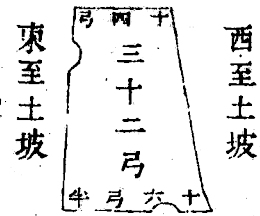 西至土坡
十四弓
三十二弓
十六弓半
東至土坡